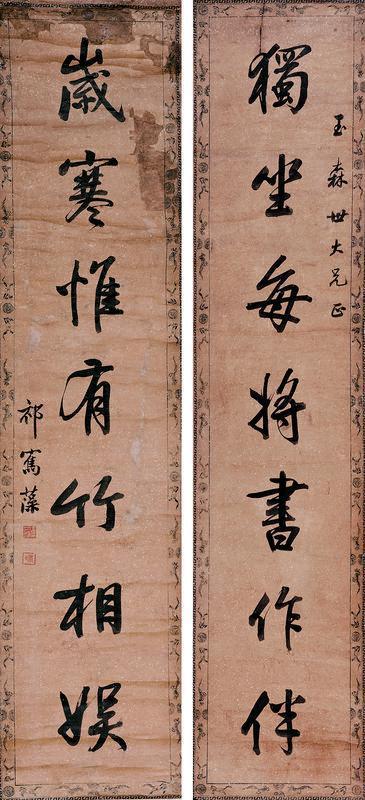 玉森世大兄正
獨坐每將書作伴
歲寒惟有竹相娛
祁寯藻